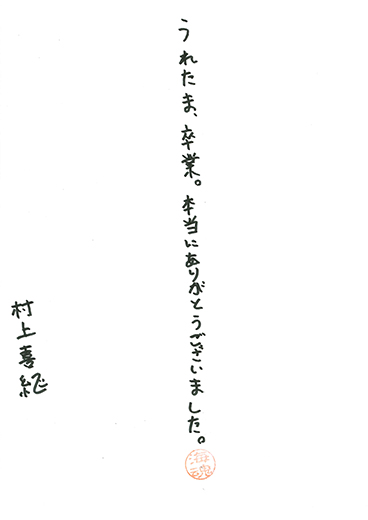 うれたま、卒業。本当にありがとうございました。
海魂
村上喜継